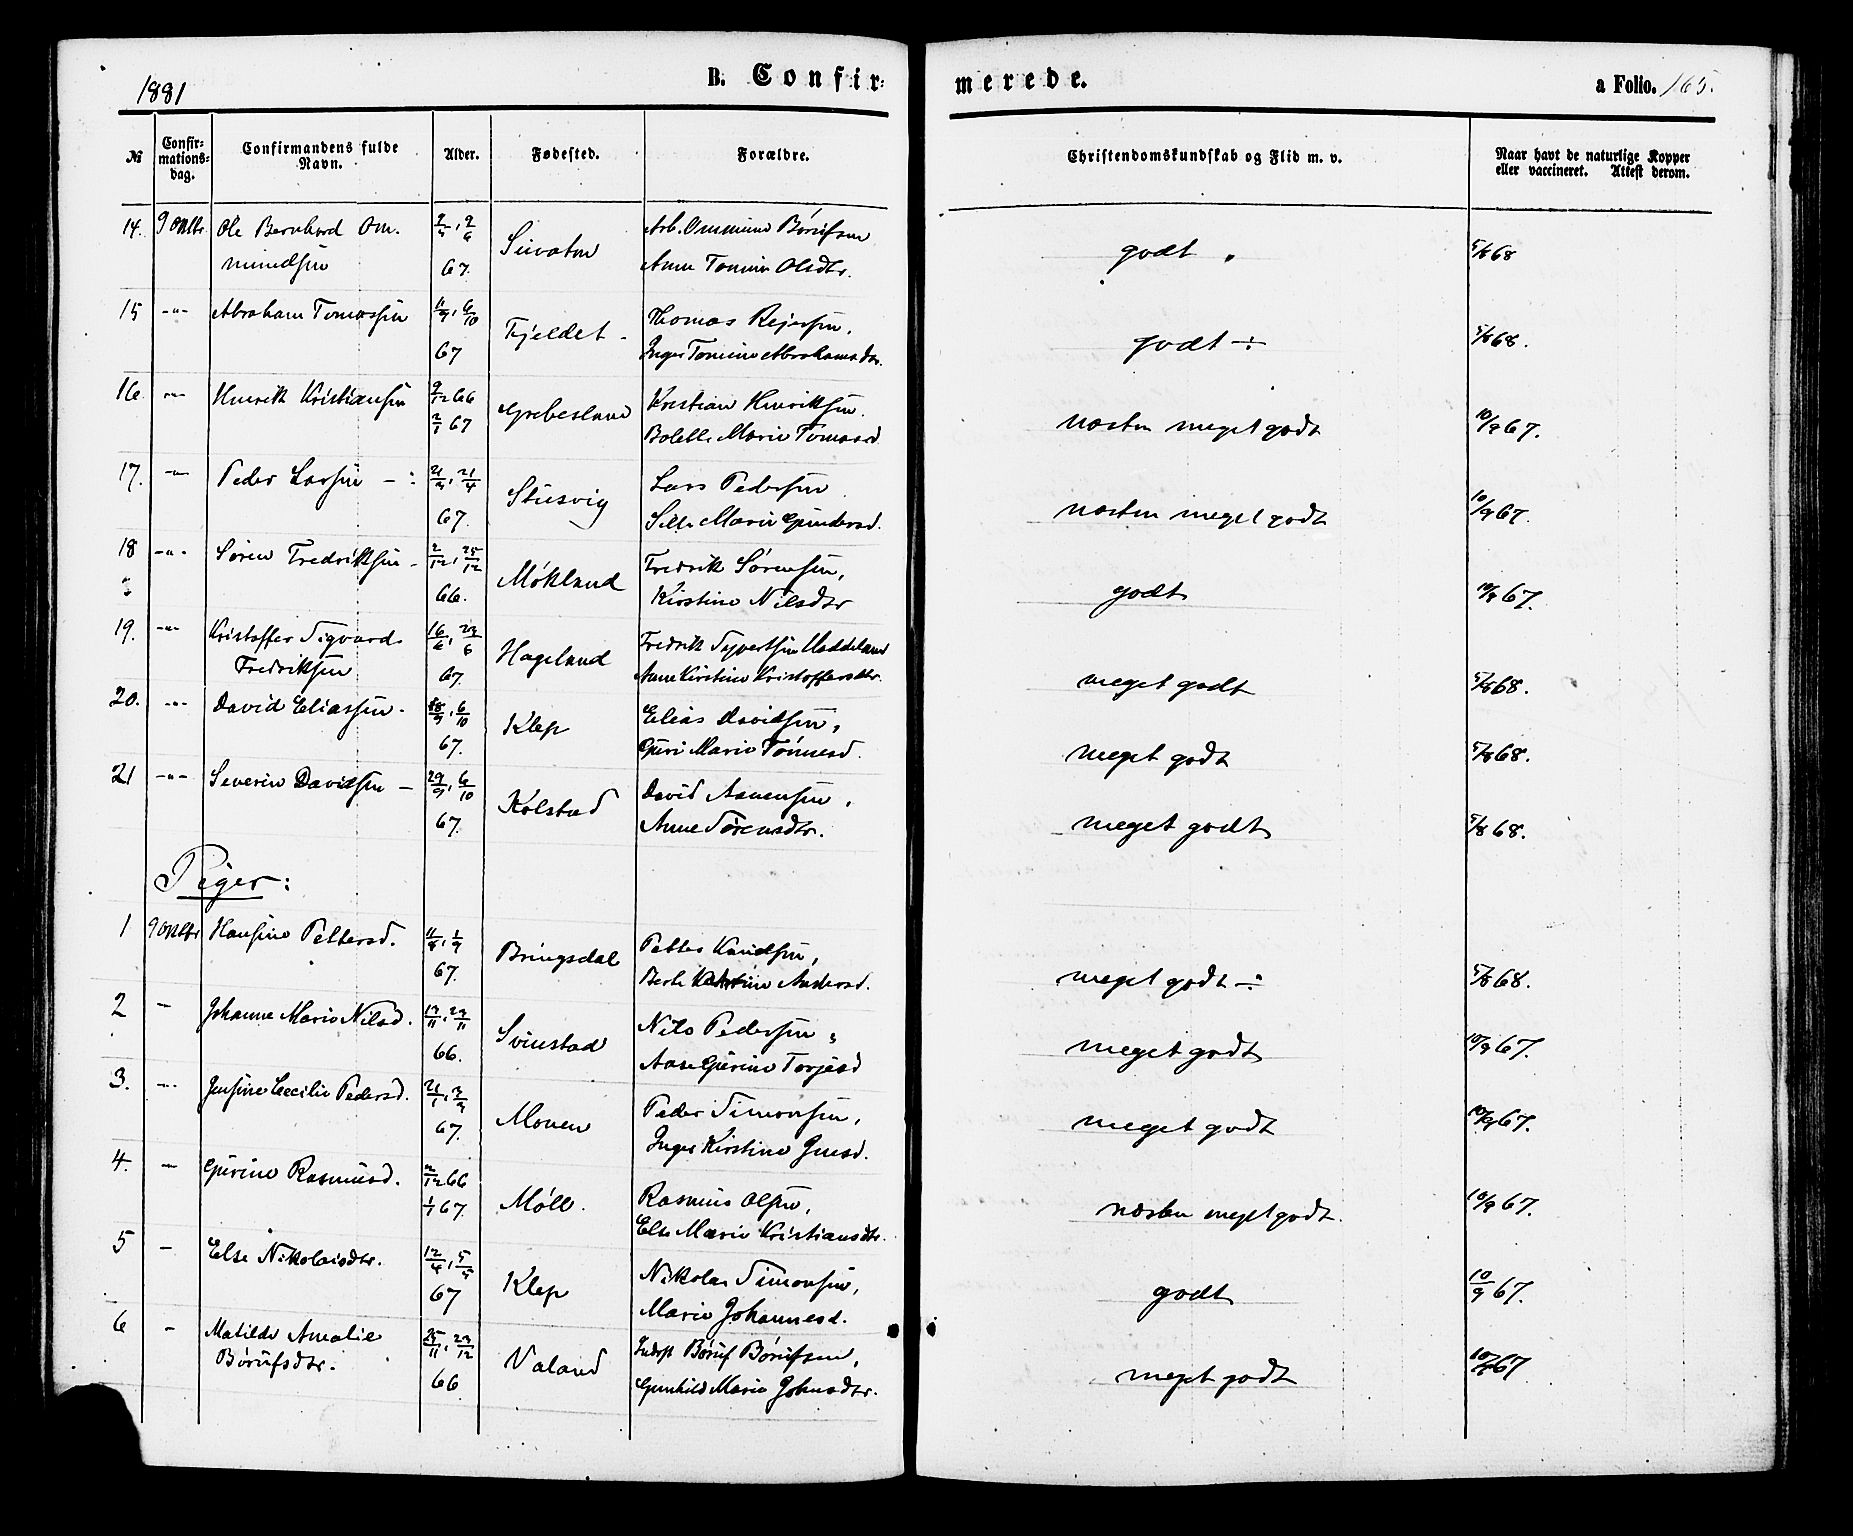 1881
B. Confir-
merede.
a Folio. 165.
№
Confir-
mations-
dag.
Confirmandens fulde
Navn.
Alder.
Fødested.
Forældre.
Christendomskundskab og Flid m. v.
Naar havt de naturlige Kopper
eller vaccineret. Attest derom.
14. 9 Oktbr Ole Bernhard Om-
mundsen
67.
Anne Tomine Olsdtr.
godt
5/8 68
15 -"- Abraham Tomassen 11/9, 6/10
67
Fjeldet
Thomas Rejersen,
Inger Tomine Abrahamsdtr.
godt ÷
5/8 68.
16. -"- Henrik Kristiansen 9/12 66
2/1 67
Grebesland
Kristian Henriksen.
Bolette Marie Tomasd.
næsten meget godt
10/9 67.
17. -"- Peder Larsen
67.
Stusvig
Lars Pedersen
Marie Gundersd.
næsten meget godt
10/9 67.
18 -"- Søren Fredriksen 2/12, 25/12
66.
Møkland
Fredrik Sørensen,
Kirstine Nilsdtr
godt
10/9 67.
19. -"- Kristoffer Sigvard
Fredriksen
16/6, 23/6
67.
Hageland
Fredrik Syvertsen Haddeland
Anne Kirstine Kristoffersdtr.
meget godt
5/8 68.
20. -"- David Eliassen 6/10
67.
Klep
Elias Davidsen,
Guri Marie Tønnesd.
meget godt
5/8 68.
21 -"- Severin Davidsen 29/9, 6/10
67.
Kolstad
David Aanensen,
Anne Sørensdtr.
meget godt
5/8 68.
Piger:
1 9 Oktbr Hansine Pettersd. 11/8, 1/9
67.
Bringsdal
Petter Knudsen,
Berte Andersd.
meget godt ÷
5/8 68.
2 - Johanne Marie Nilsd. 13/11, 23/11
66.
Svinstad
Nils Pedersen,
Aase Gurine Torjusd
meget godt
10/9 67.
3. -"- Jensine Cecilie Pedersd.
67.
Monen
Peder Simonsen,
Inger Kirstine
meget godt
10/9 67.
4. - Gurine Rasmusd. 2/12 66
1/1 67.
Møll.
Rasmus Olsen,
Else Marie Kristiansdtr.
næsten meget godt.
10/9 67.
5 - Else Nikolaisdtr. 12/4, 5/5
67
Klep
Nikolai Simonsen,
Marie Johannesd.
godt
10/9 67.
6 - Matilde Amalie
Børufsdtr.
25/11, 23/12
66
Valand
Børuf Børufsen,
Gunhild Marie Johnsdtr.
meget godt
10/9 67